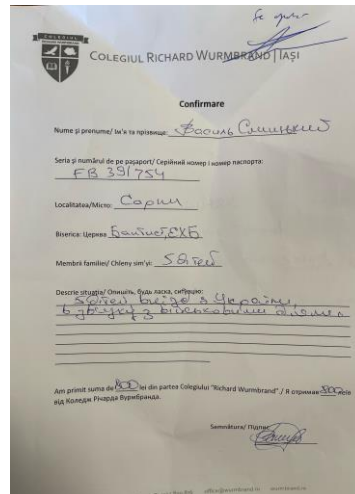 Se aprobă
COLEGIUL RICHARD WURMBRAND | IAȘI
Confirmare
Nume și prenume/ Ім'я та прізвище: Василь
Seria și numărul de pe pașaport/ Серійний номер і номер паспорта:
FB 391754
Localitatea/Місто: Сарни
Biserica: Церква Баптист, ЄХБ
Membrii familiei/ Chleny sim'yi: 5 дітей
Descrie situația/ Опишіть, будь ласка, ситуацію:
5 дітей виїзд з України,
в зв'язку з військовими діями.
Am primit suma de 800 lei din partea Colegiului "Richard Wurmbrand"./ Я отримав 800 леїв
від Коледж Річарда Вурмбранда.
Semnătura/ Підпис
office@wurmbrand.ro